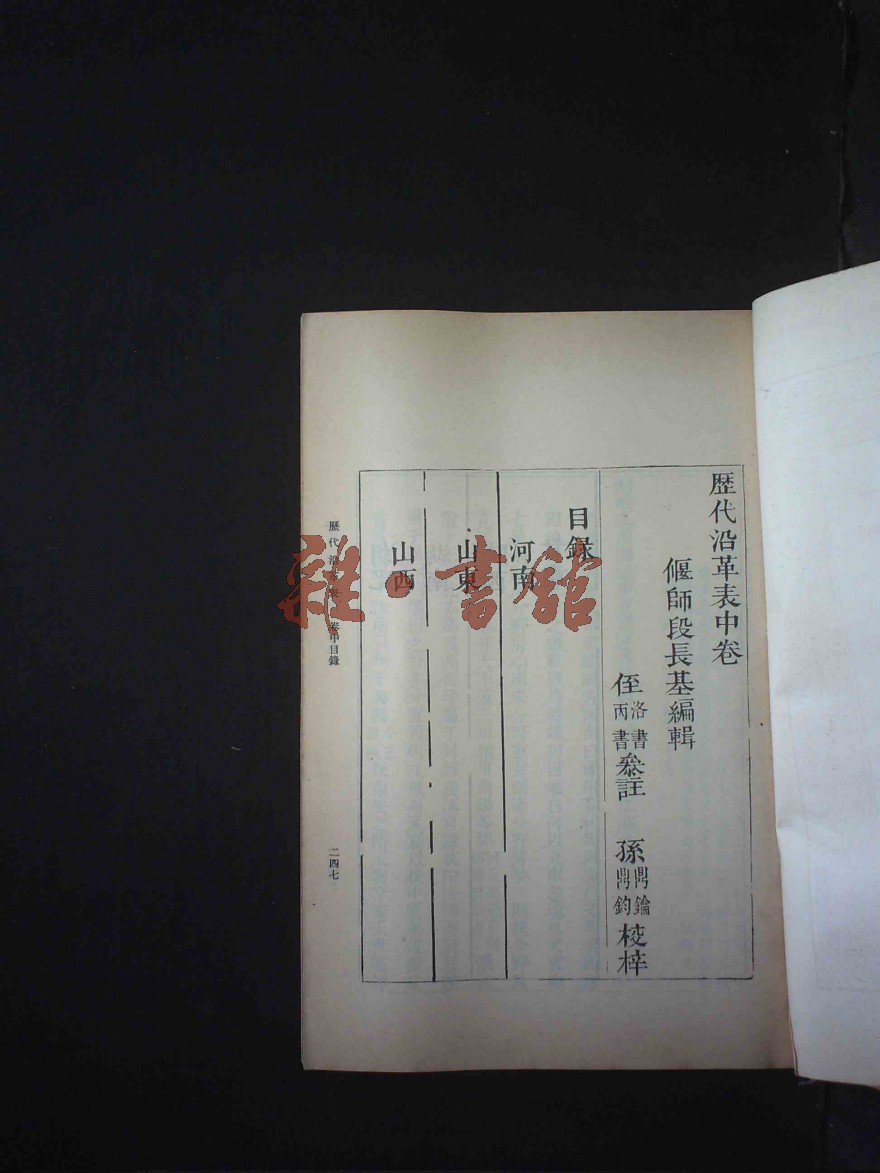 歷代沿革表中卷
偃師段長基編輯
侄洛書丙書叅註　孫鼎鑰鼎鈞校梓
目錄
河南
山東
山西
歷代沿革表　卷中目錄
二四七
雜·書館